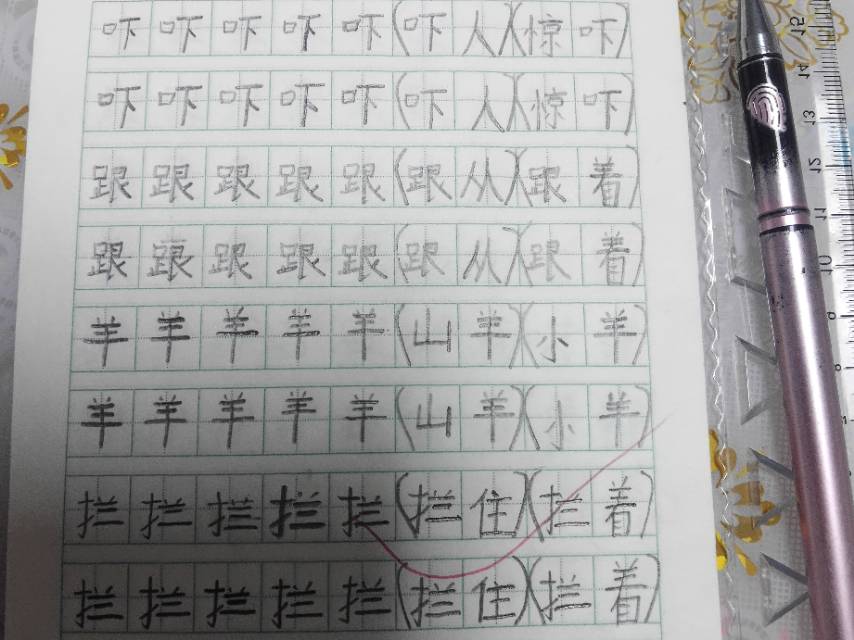 吓吓吓吓吓(吓人)(惊吓)
吓吓吓吓吓(吓人)(惊吓)
跟跟跟跟跟(跟从)(跟着)
跟跟跟跟跟(跟从)(跟着)
羊羊羊羊羊(山羊)(小羊)
羊羊羊羊羊(山羊)(小羊)
拦拦拦拦拦(拦住)(拦着)
拦拦拦拦拦(拦住)(拦着)
15
14
13
12
11
10
9
8